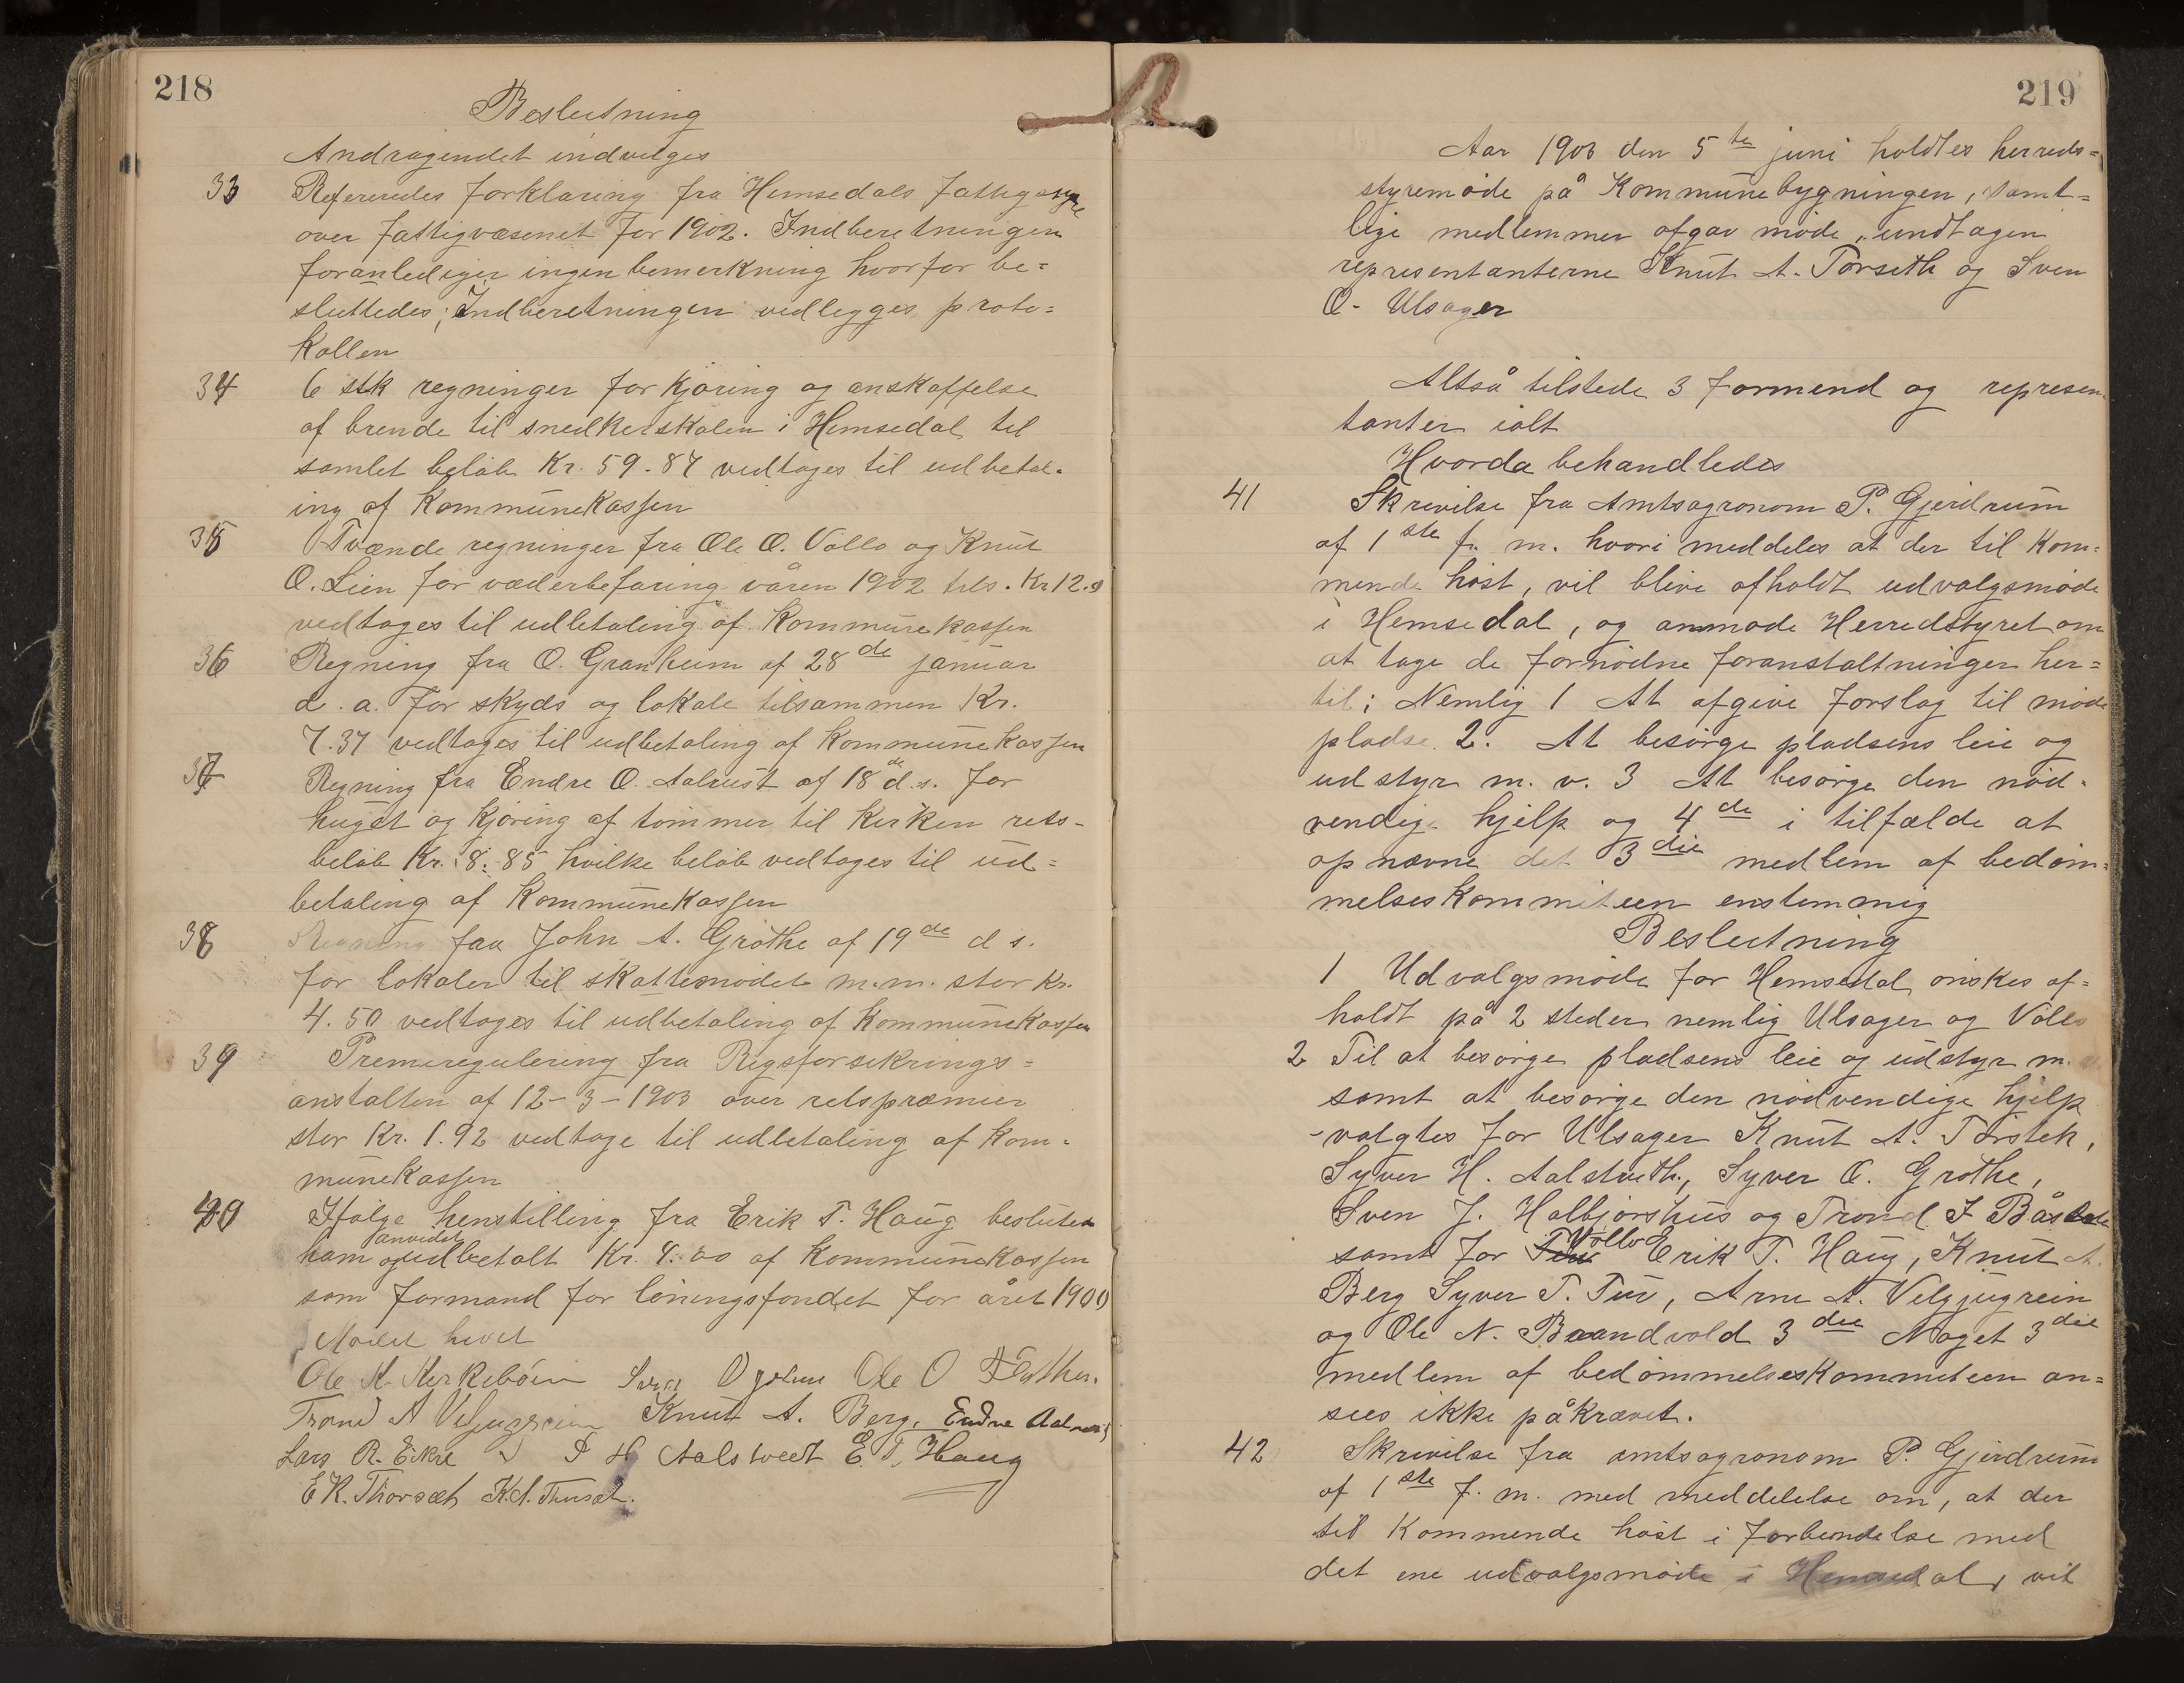 218
Beslutning
Andragendet indvilges
33 Refereredes forklaring fra Hemsedals fattigstyre
over fattigvæsenet for 1902. Indberetningen
foranlediger ingen bemerkning hvorfor be=
sluttedes; Indberetningen vedlegges proto=
kollen
34 6 stk regninger for kjøring og anskaffelse
af brende til snedkerskolen i Hemsedal, til
samlet beløb Kr. 59.87 vedtages til udbetal-
ing af Kommunekassen
35 Tvænde regninger fra Ole O. Vøllo og Knut
O. Lien for væderbefaring våren 1902 tils. Kr 12.
vedtages til udbetaling af Kommunekassen
36 Regning fra O. Granheim af 28de januar
d. a. for skyds og lokale tilsammen Kr.
7.37 vedtages til udbetaling af Kommunekassen
37 Regning fra Endre O. Aalrust af 18de d.s. for
huget og kjøring af tømmer til kirken rets-
beløb Kr. 8.85 hvilke beløb vedtages til ud=
betaling af Kommunekassen
38 Regning fra John A. Grøthe af 19de d s.
for lokaler til skattemødet m.m. stor Kr.
4.50 vedtages til udbetaling af Kommunekassen
39 Premieregulering fra Rigsforsikrings=
anstalten af 12-3-1903 over retspræmier
stor Kr. 1.92 vedtage til udbetaling af Kom-
munekassen
40 Ifølge henstilling fra Erik T. Haug besluttes
anvidst
ham og udbetalt Kr. 8.00 af Kommunekassen
som formand for løningsfondet for året 1900
Mødet hevet
Ole K. Kirkebøen Ole O
Trond A Veljugrein Knut A. Berg. Endre Aalrust
Lars R. Eikre S H Aalstveit E. T. Haug
E K. Thorset K.A. Thorset.
219
Aar 1903 den 5te juni holdtes herreds=
styremøde på Kommunebygningen, samt=
lige medlemmer afgav møde, undtagen
representanterne Knut A. Torseth og Sven
O. Ulsager
Altså tilstede 3 formend og represen
tanter ialt
Hvorda behandledes
41 Skrivelse fra Amtsagronom P. Gjerdrum
af 1ste f. m. hvori meddeles at der til kom=
mende høst, vil blive afholdt udvalgsmøde
i Hemsedal, og anmode Herredstyret om
at tage de fornødne foranstaltninger her=
til; Nemlig 1 At afgive forslag til møde
pladse. 2. At besørge pladsens leie og
udstyr m. v. 3 At besørge den nød-
vendige hjelp og 4de i tilfælde at
opnævne det 3die medlem af bedøm=
melseskommiteen enstemmig
Beslutning
1 Udvalgsmøde for Hemsedal ønskes af=
holdt på 2 steder nemlig Ulsager og Vøllo
2 Til at besørge pladsens leie og udstyr m.
samt at besørge den nødvendige hjelp
valgtes for Ulsager Knut A. Torsteh,
Syver H. Aalstveth, Syver O. Grøthe,
Sven J. Halbjørshus og Trond I
Vøllo
samt for Erik T. Haug, Knut A.
Berg Syver T. Tuv, Arne A. Velgjugrein
og Ole N. Braandvold 3die Noget 3die
medlem af bedømmelseskommiteen an=
sees ikke påkrævet.
42 Skrivelse fra amtsagronom P. Gjerdrum
af 1ste f. m. med meddelelse om, at der
til kommende høst i forbindelse med
det ene udvalgsmøde i Hemsedal, vil